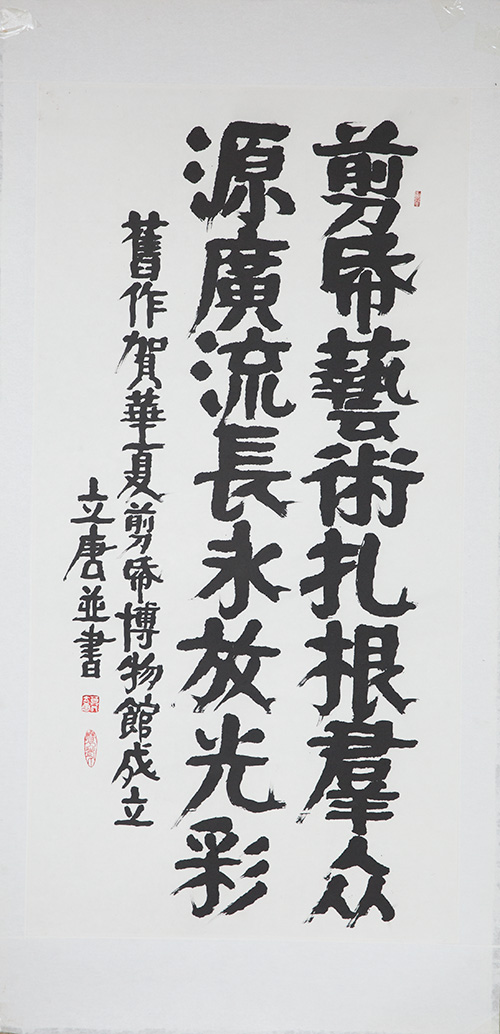 剪帋藝術扎根羣众
源廣流長永放光彩
舊作賀華夏剪帋博物館成立
立唐並書